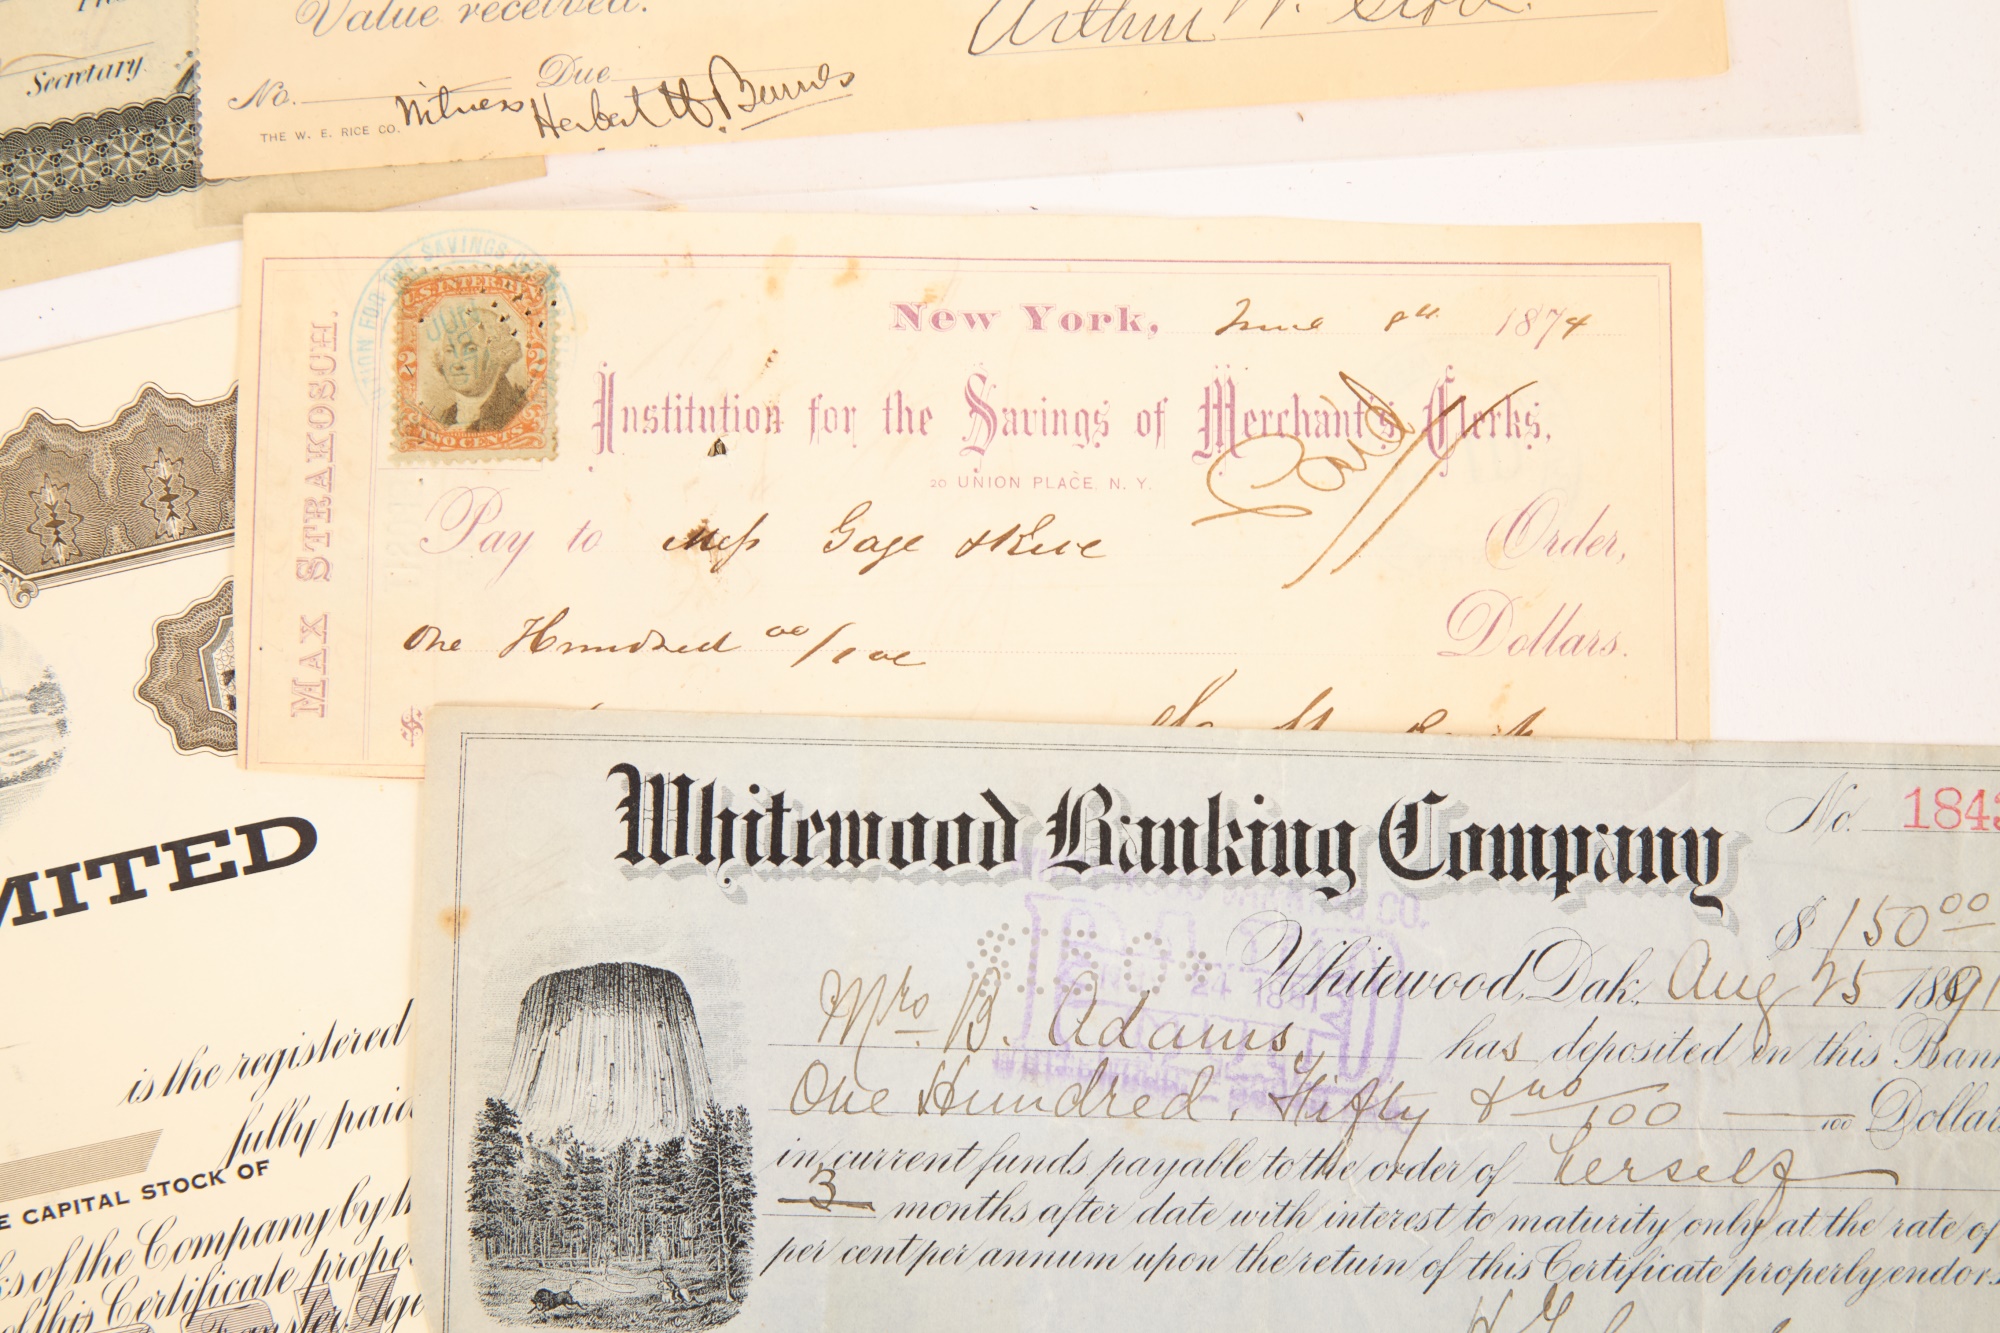 Value received.
Arthur W.
Secretary
No. Due
Witness Herbert W. Burris
THE W. E. RICE CO.
MAX STRAKOSCH.
SAVINGS
U.S. INTER. REV.
2 2
TWO CENTS
New York, June 8th 1874
Institution for the Savings of Merchant's Clerks,
20 UNION PLACE, N. Y.
Paid
Pay to Mess Gage & Rice Order,
One Hundred 00/100 Dollars.
$
Whitewood Banking Company
No. 1843
$ 150 00
$150*
Whitewood, Dak. Aug 25 1891
Mrs. B. Adams, has deposited in this Bank
One Hundred, Fifty & no/100 100 Dollars
in current funds payable to the order of herself
3 months after date with interest to maturity only at the rate of
per cent per annum upon the return of this Certificate properly endors
MITED
is the registered
fully paid
E CAPITAL STOCK OF
ks of the Company by h
of this Certificate prope
Transfer Age